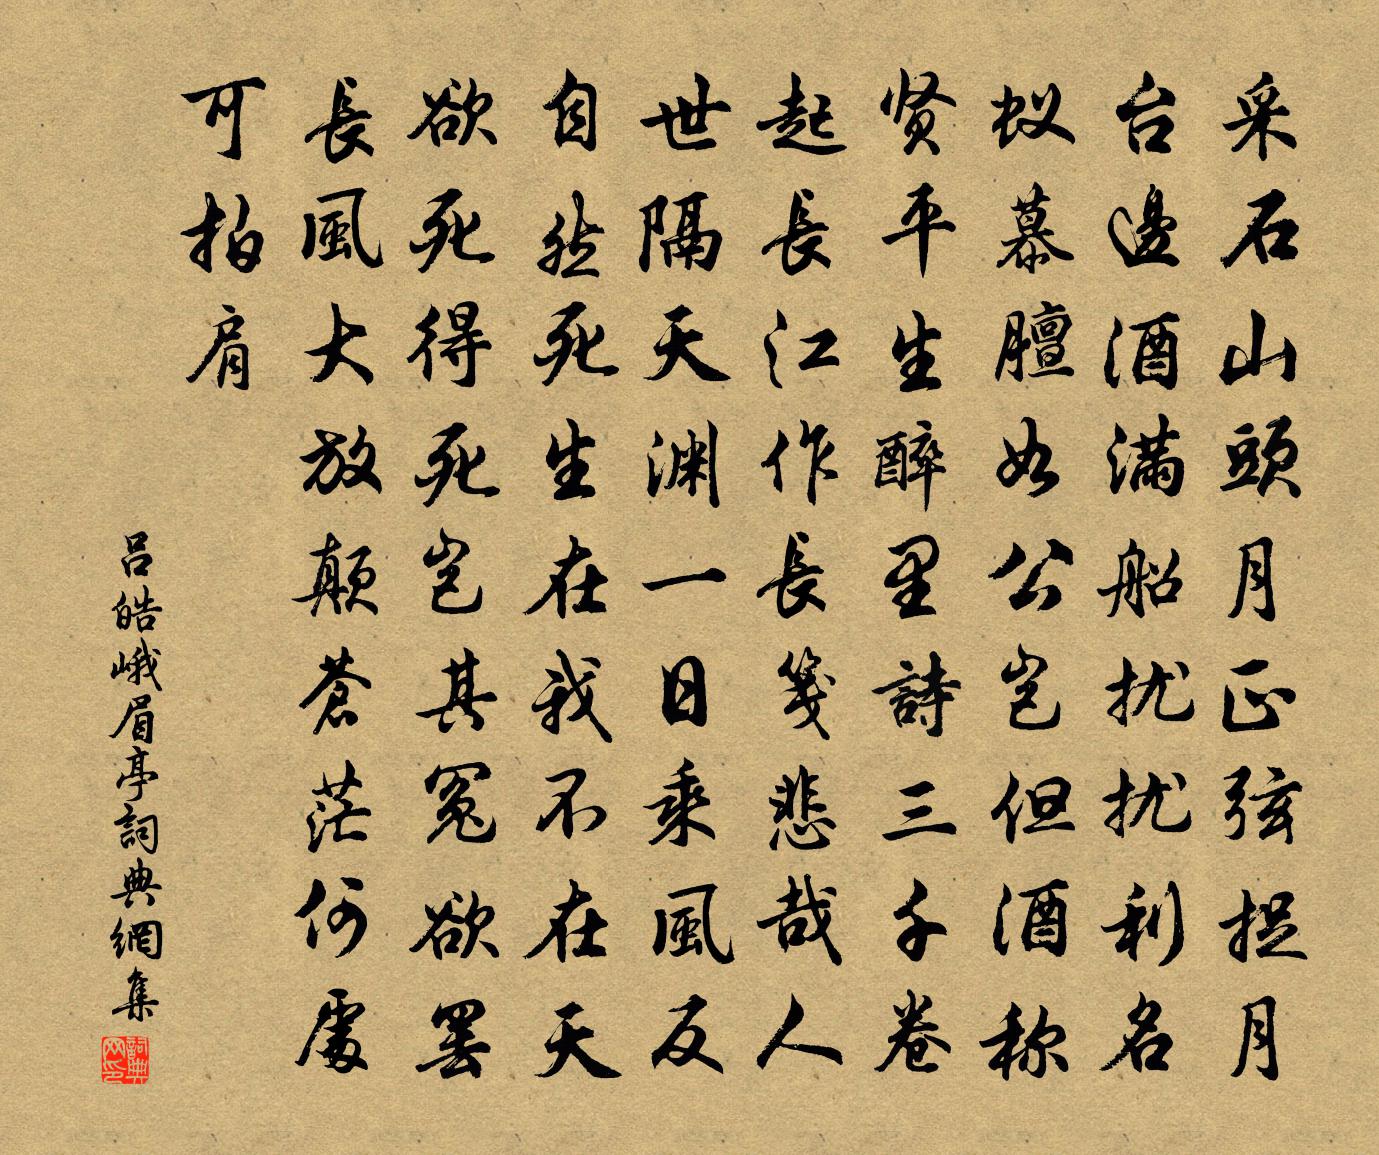 采石山頭月正弦捉月
台邊酒満船扰扰利名
蚁慕膻如公岂但酒称
贤平生醉里詩三千卷
起長江作長箋悲哉人
世隔天渊一日乘風反
自然死生在我不在天
欲死得死岂其冤欲罢
長風大放颠蒼茫何處
可拍肩
吕皓峨眉亭詞典網集
詞典网印